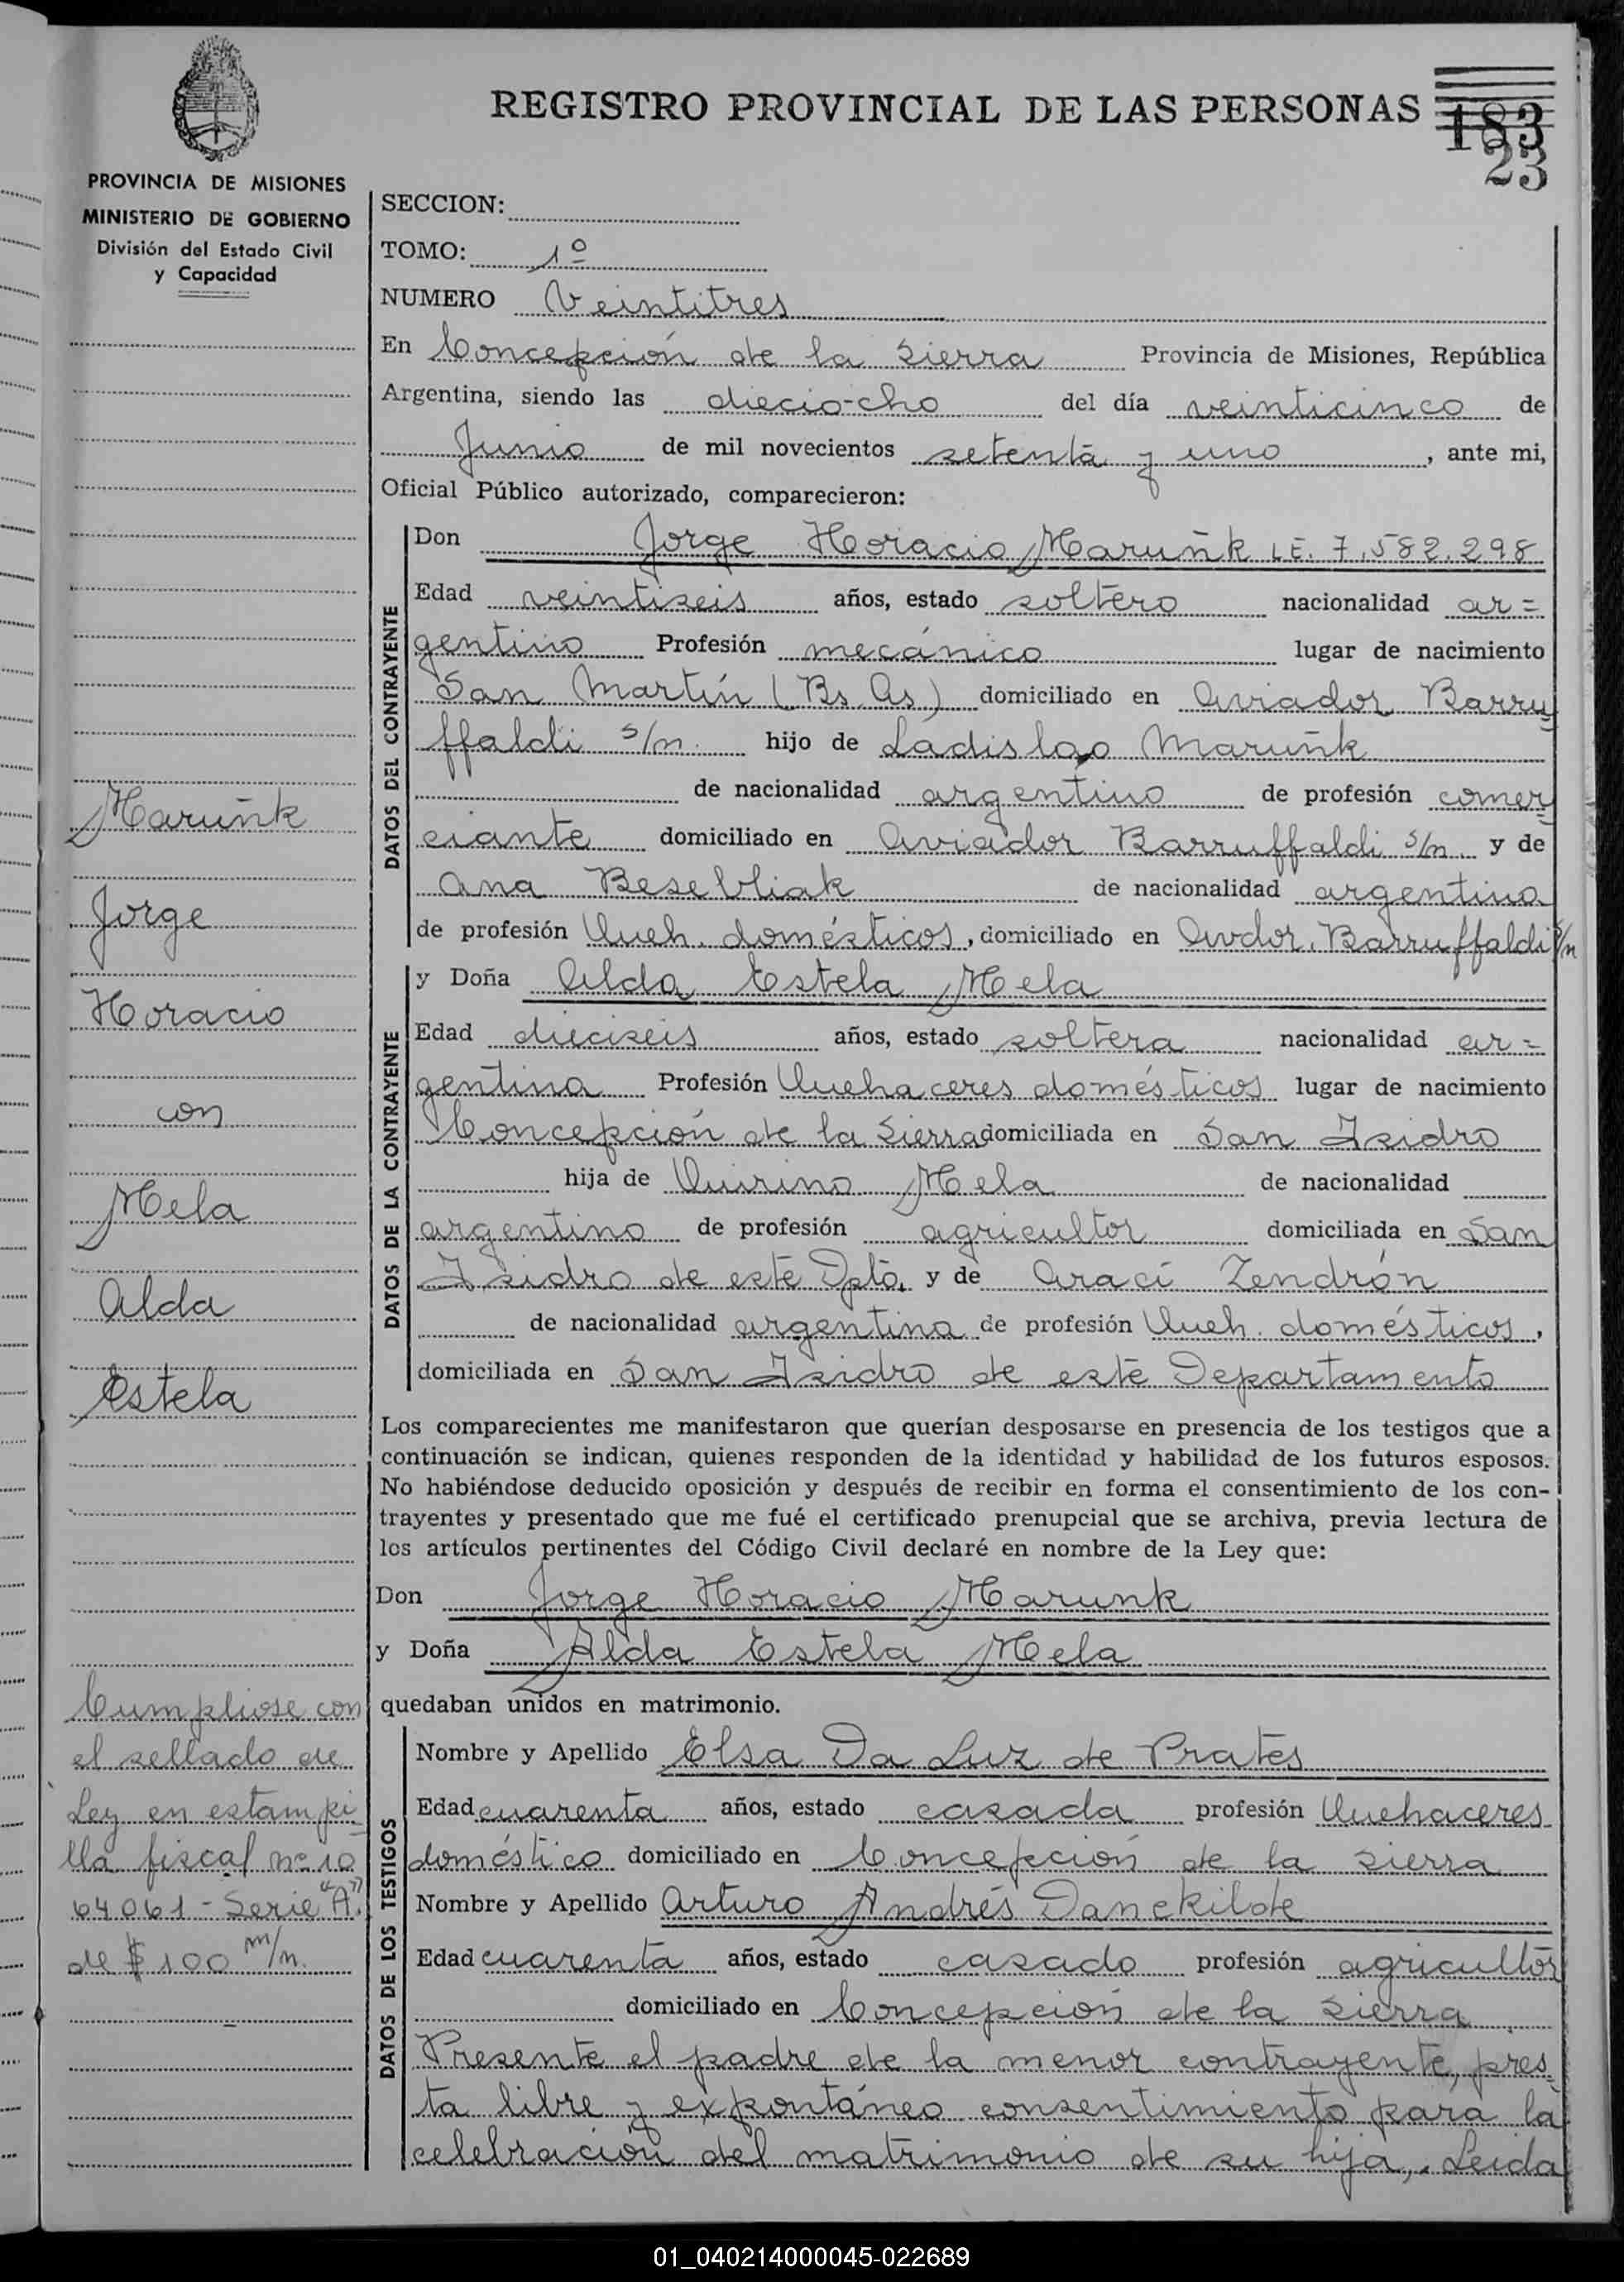 REGISTRO PROVINCIAL DE LAS PERSONAS
183
23
PROVINCIA DE MISIONES
MINISTERIO DE GOBIERNO
División del Estado Civil
y Capacidad
SECCION:
TOMO: 1º
NUMERO Veintitres
En Concepción de la Sierra Provincia de Misiones, República
Argentina, siendo las dieciocho del día veinticinco de
Junio de mil novecientos setenta y uno, ante mi,
Oficial Público autorizado, comparecieron:
DATOS DEL CONTRAYENTE
Don Jorge Horacio Maruñk L.E. 7.582.298
Edad veintiseis años, estado soltero nacionalidad ar=
gentino Profesión mecánico lugar de nacimiento
San Martín (Bs As) domiciliado en Aviador Barru=
ffaldi s/n. hijo de Ladislao Maruñk
de nacionalidad argentino de profesión comer=
ciante domiciliado en Aviador Barruffaldi s/n y de
Ana Besebliak de nacionalidad argentina
de profesión Queh. domésticos, domiciliado en Avdor. Barruffaldi s/n
DATOS DE LA CONTRAYENTE
y Doña Alda Estela Mela
Edad dieciseis años, estado soltera nacionalidad ar=
gentina Profesión Quehaceres domésticos lugar de nacimiento
Concepción de la Sierra domiciliada en San Isidro
hija de Quirino Mela de nacionalidad
argentino de profesión agricultor domiciliada en San
Isidro de este Dpto, y de Araci Zendrón
de nacionalidad argentina de profesión Queh. domésticos,
domiciliada en San Isidro de este Departamento
Los comparecientes me manifestaron que querían desposarse en presencia de los testigos que a
continuación se indican, quienes responden de la identidad y habilidad de los futuros esposos.
No habiéndose deducido oposición y después de recibir en forma el consentimiento de los con-
trayentes y presentado que me fué el certificado prenupcial que se archiva, previa lectura de
los artículos pertinentes del Código Civil declaré en nombre de la Ley que:
Don Jorge Horacio Marunk
y Doña Alda Estela Mela
quedaban unidos en matrimonio.
DATOS DE LOS TESTIGOS
Nombre y Apellido Elsa Da Luz de Prates
Edad cuarenta años, estado casada profesión Quehaceres
doméstico domiciliado en Concepción de la Sierra
Nombre y Apellido Arturo Andrés Danekilde
Edad cuarenta años, estado casado profesión agricultor
domiciliado en Concepción de la Sierra
Presente el padre de la menor contrayente, pres=
ta libre y expontáneo consentimiento para la
celebración del matrimonio de su hija,. Leida
Maruñk
Jorge
Horacio
con
Mela
Alda
Estela
Cumpliose con
el sellado de
Ley en estampi=
lla fiscal nº 10
64061 - Serie "A".
de $ 100 m/n.
01_040214000045-022689